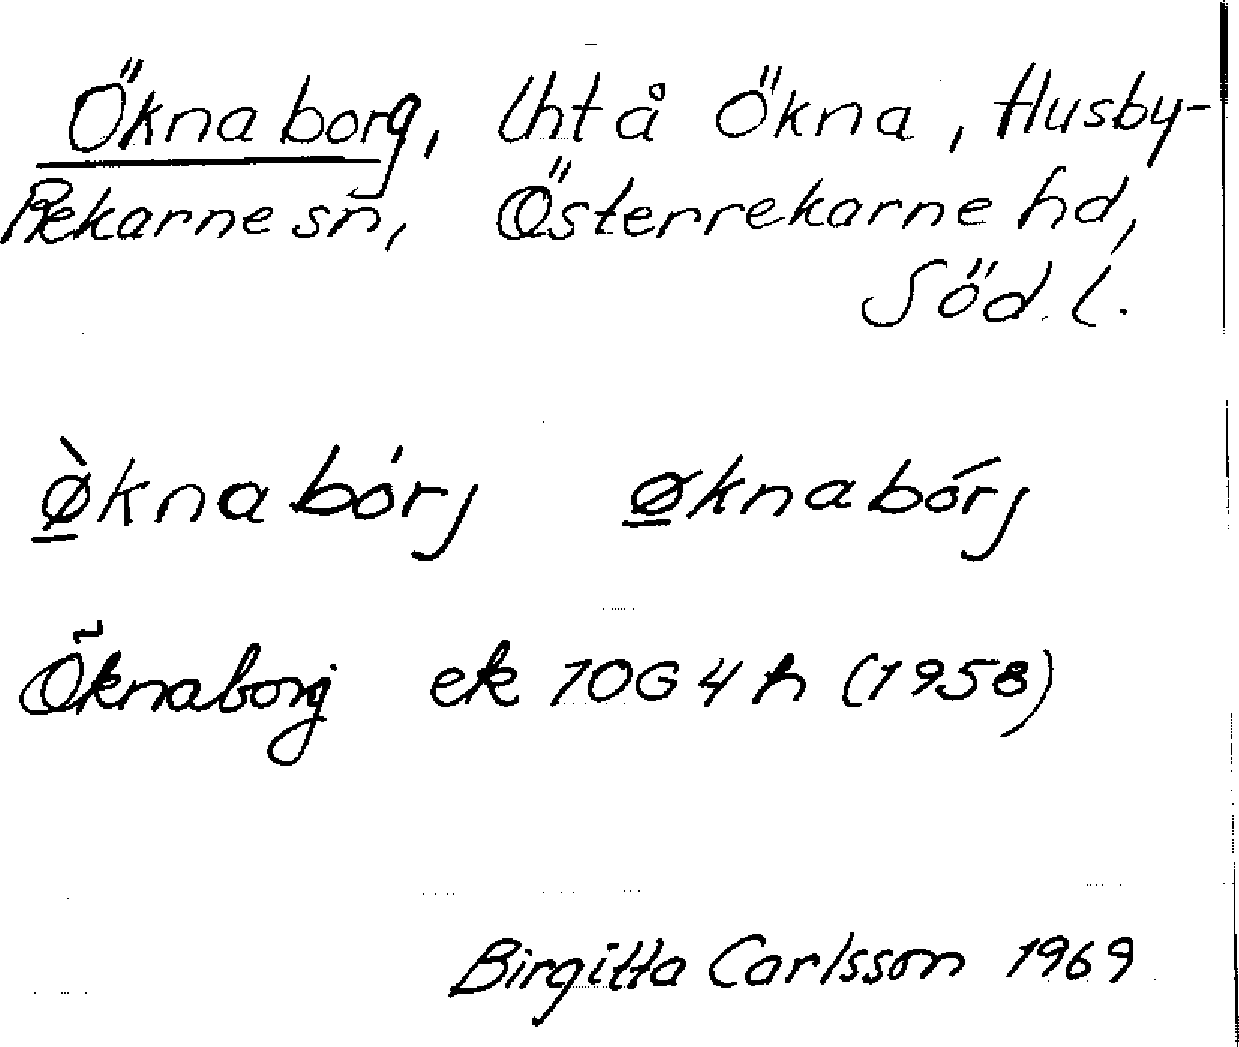 Öknaborg, lht å Ökna, Husby-
Rekarne sn, Österrekarne hd,
Söd. l.
ø̀knabórj øknabórj
Öknaborg ek 10G 4 h (1958)
Birgitta Carlsson 1969